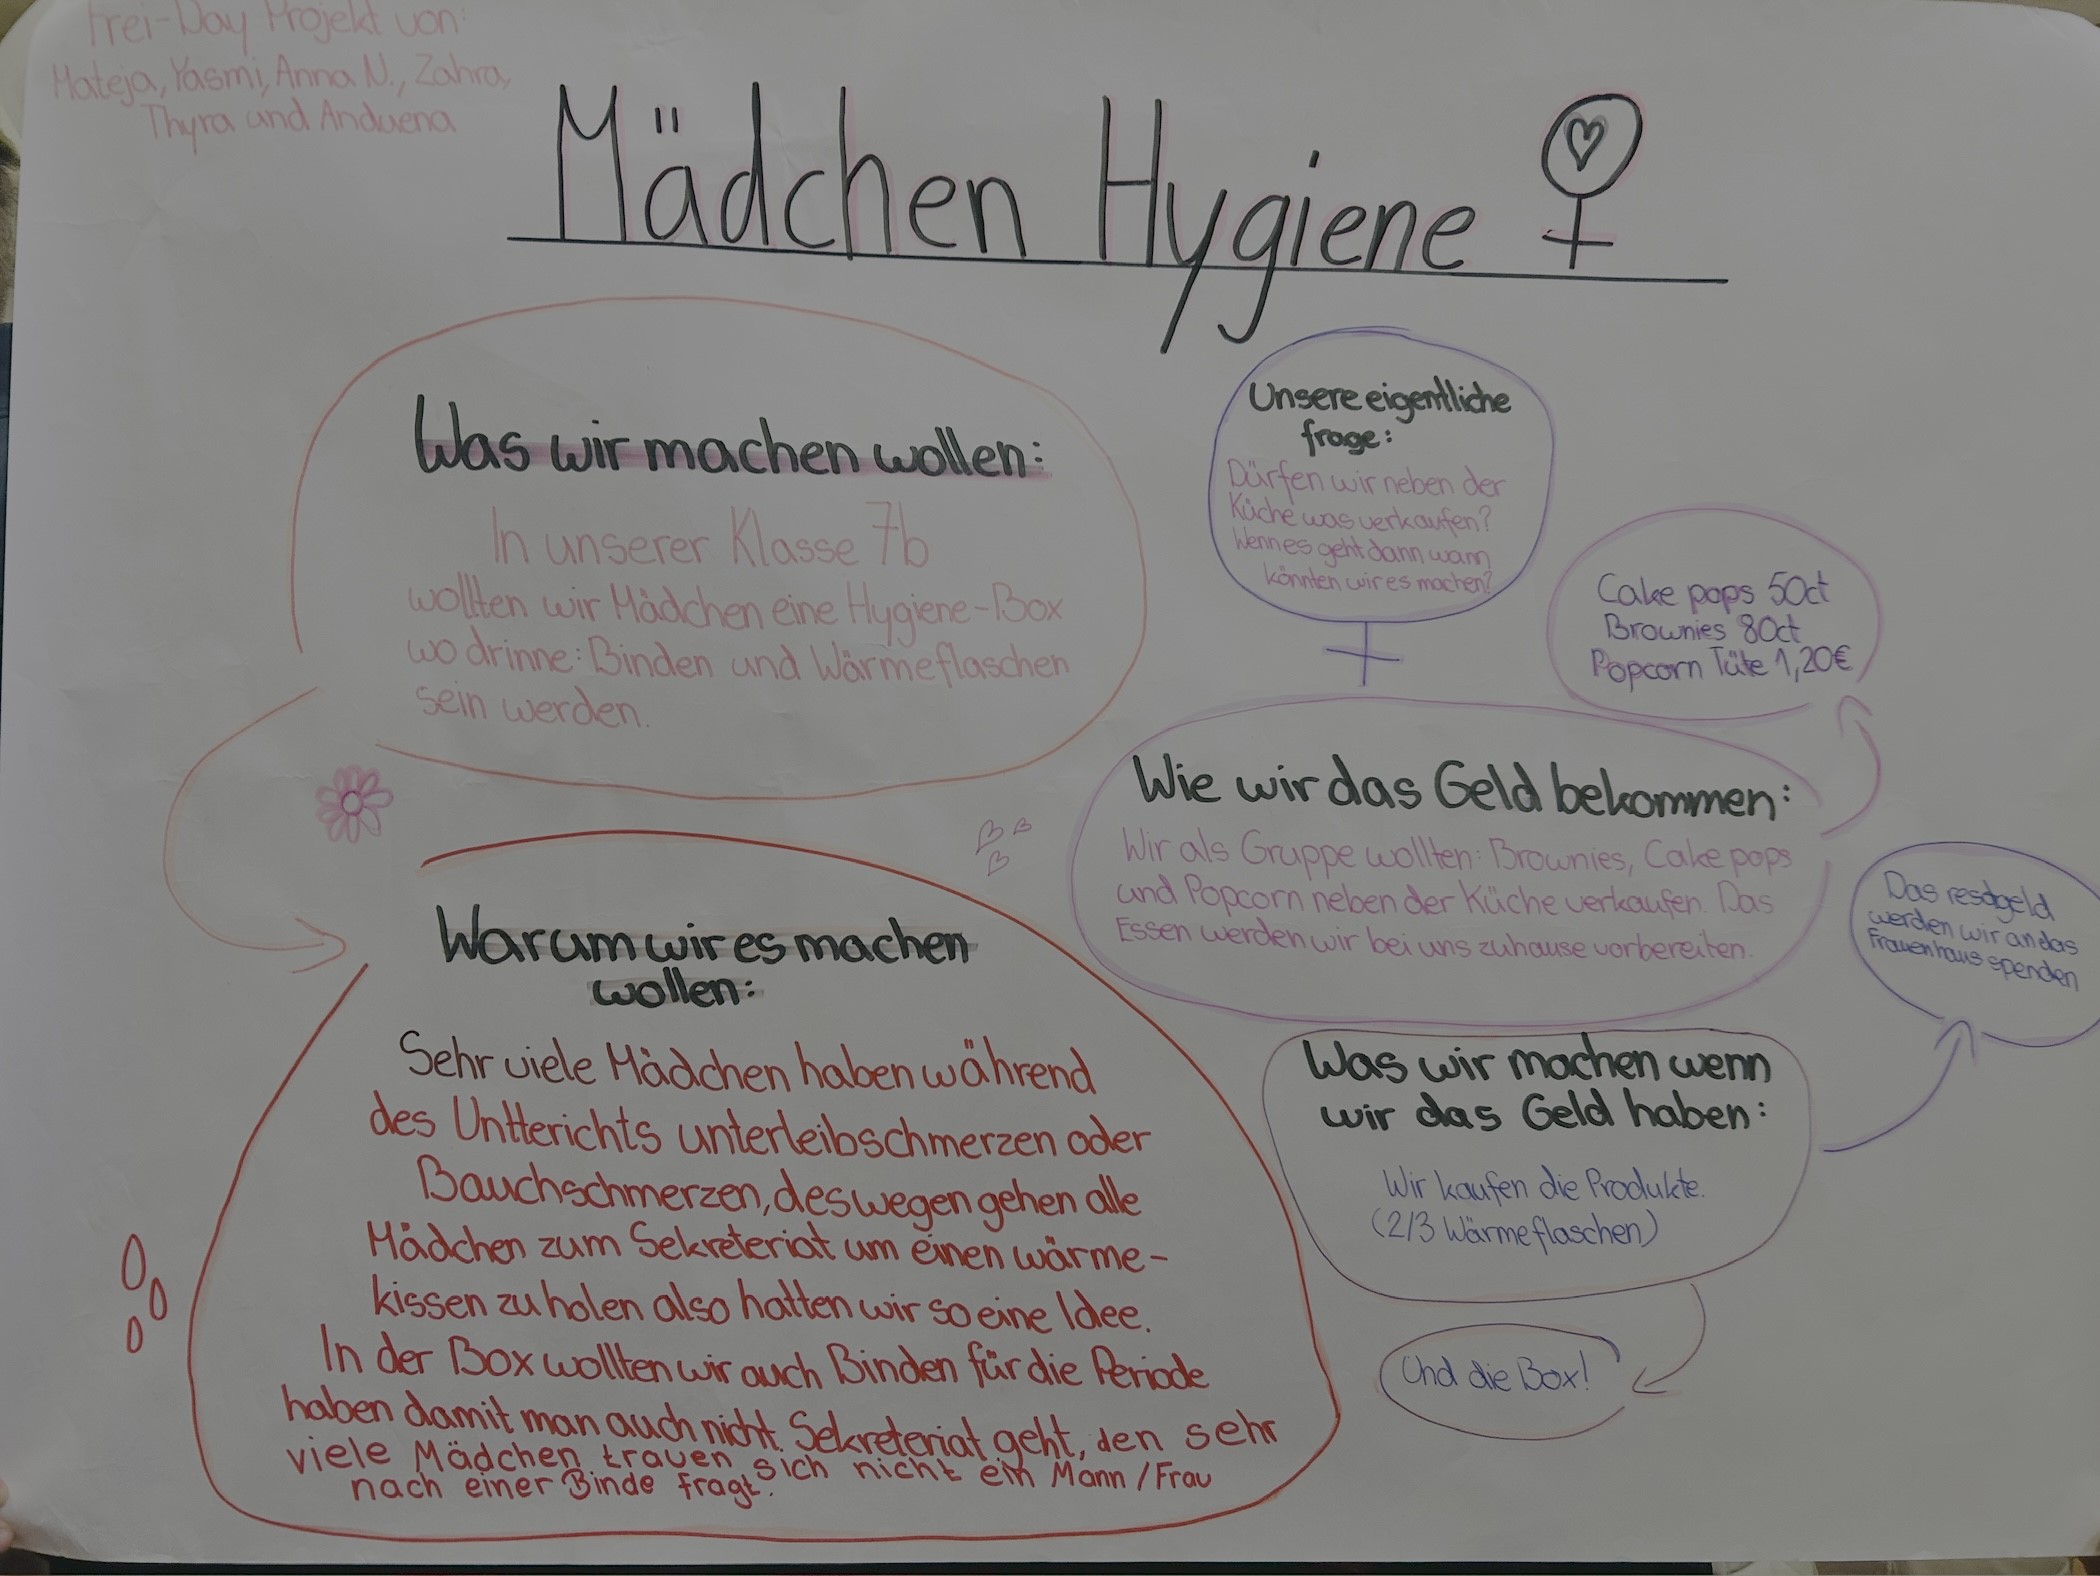 Frei-Day Projekt von:
Mateja, Yasmi, Anna N., Zahra,
Thyra und Anduena
Mädchen Hygiene
Was wir machen wollen:
In unserer Klasse 7b
wollten wir Mädchen eine Hygiene-Box
wo drinne: Binden und Wärmeflaschen
sein werden.
Unsere eigentliche
frage:
Dürfen wir neben der
Küche was verkaufen?
Wenn es geht dann wann
könnten wir es machen?
Cake pops 50ct
Brownies 80ct
Popcorn Tüte 1,20€
Wie wir das Geld bekommen:
Wir als Gruppe wollten: Brownies, Cake pops
und Popcorn neben der Küche verkaufen. Das
Essen werden wir bei uns zuhause vorbereiten.
Das resdgeld
werden wir an das
Frauenhaus spenden
Warum wir es machen
wollen:
Sehr viele Mädchen haben während
des Untterichts unterleibschmerzen oder
Bauchschmerzen, deswegen gehen alle
Mädchen zum Sekreteriat um einen wärme-
kissen zu holen also hatten wir so eine Idee.
In der Box wollten wir auch Binden für die Periode
haben damit man auch nicht Sekreteriat geht, den sehr
viele Mädchen trauen sich nicht ein Mann/Frau
nach einer Binde fragt.
Was wir machen wenn
wir das Geld haben:
Wir kaufen die Produkte.
(2/3 Wärmeflaschen)
Und die Box!